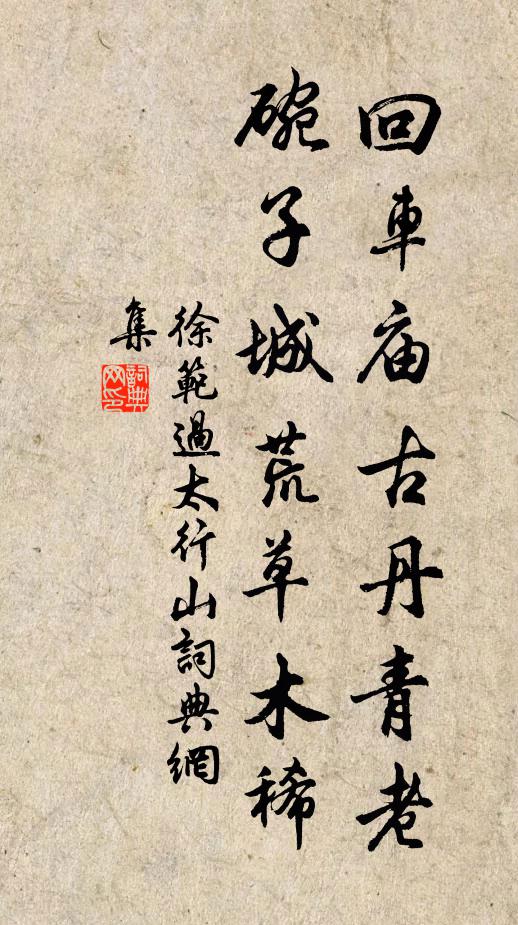 回車庙古丹青老
碗子城荒草木稀
徐範過太行山詞典網
集
詞典
网印